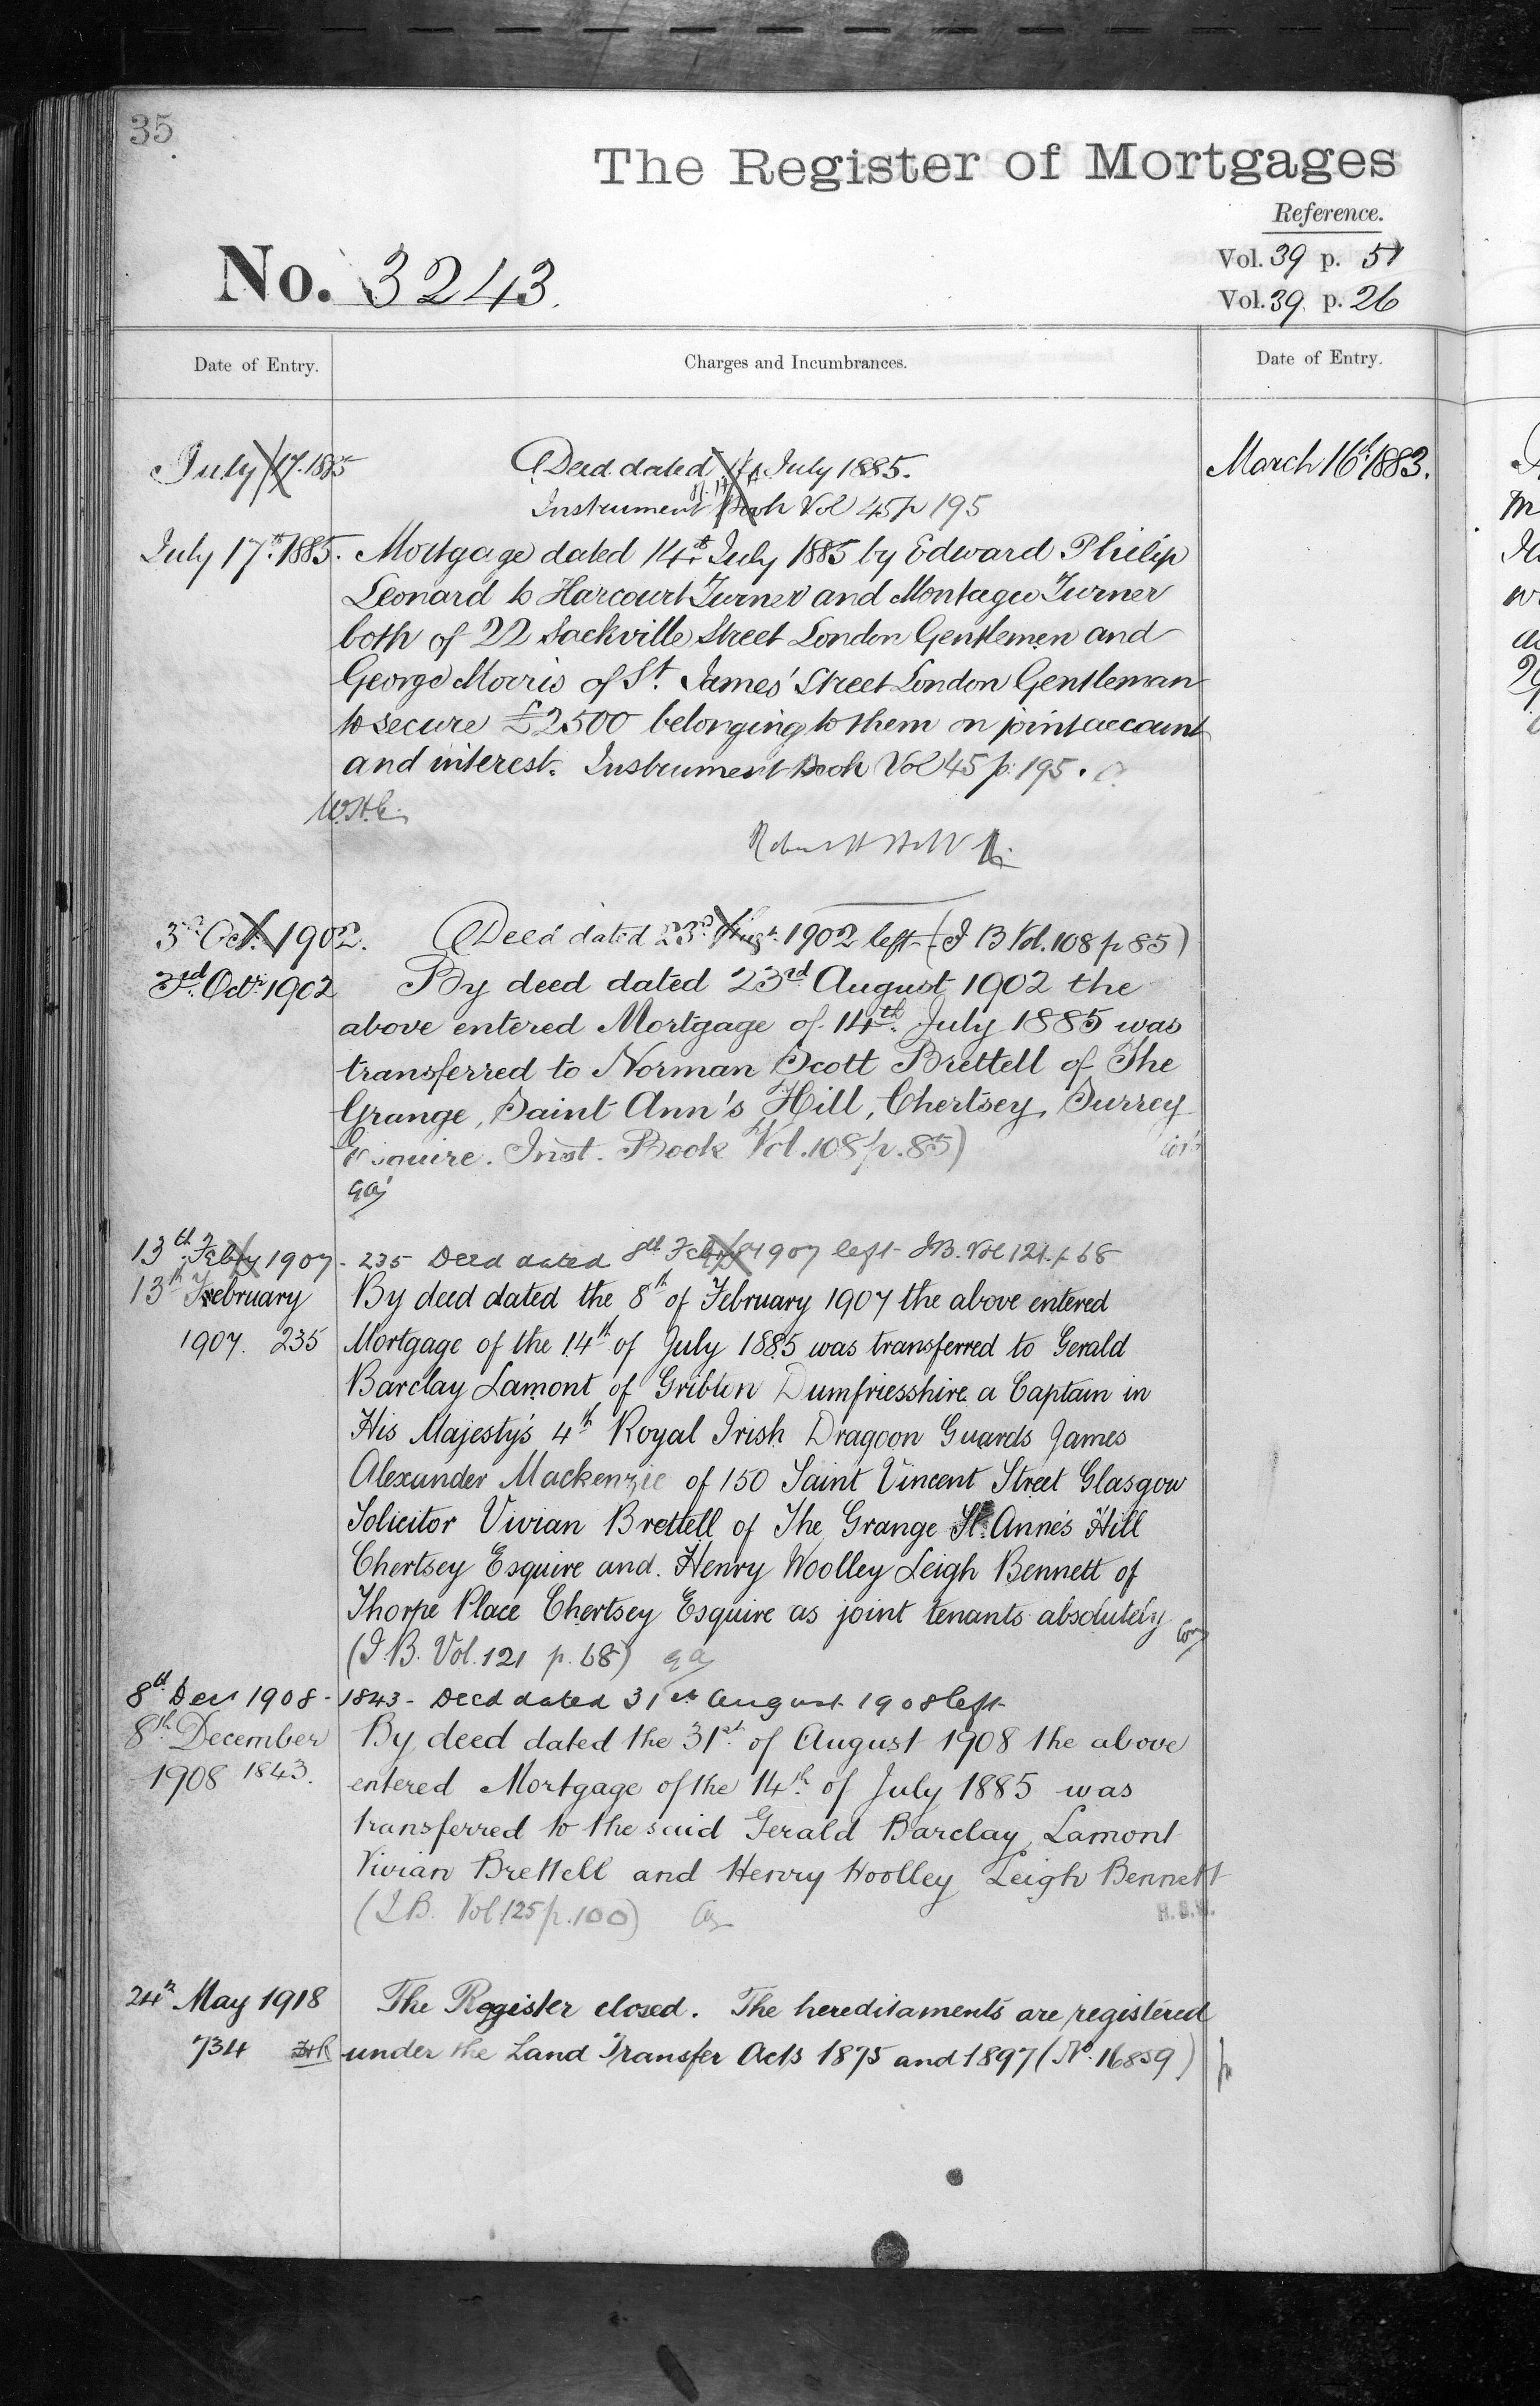 35
The Register of Mortgages
Reference.
No. 3243.
Vol. 39 p. 51
Vol. 39. p. 26
Date of Entry.
Charges and Incumbrances.
Date of Entry.
July 17. 1885
Deed dated July 1885.
March 16th 1883.
Instrument Book Vol 45 p 195
July 17th 1885. Mortgage dated 14th July 1885 by Edward Philip
Leonard to Harcourt Turner and Montague Turner
both of 22 Sackville Street London Gentlemen and
George Morris of St. James' Street London Gentleman
to secure £2500 belonging to them on joint account
and interest. Instrument Book Vol 45 p. 195.
3rd Oct. 1902. Deed dated 23rd Augt. 1902 left (I B Vol. 108 p 85)
3rd Octr 1902 By deed dated 23rd August 1902 the
above entered Mortgage of 14th July 1885 was
transferred to Norman Scott Brettell of The
Grange, Saint Ann's Hill, Chertsey, Surrey
Esquire. Inst. Book Vol. 108 p. 85)
13th Feby 1907 - 235 Deed dated 8th Feby 1907 left - I.B. Vol 121. p 68
13th February By deed dated the 8th of February 1907 the above entered
1907. 235 Mortgage of the 14th of July 1885 was transferred to Gerald
Barclay Lamont of Gribton Dumfriesshire a Captain in
His Majesty's 4th Royal Irish Dragoon Guards James
Alexander Mackenzie of 150 Saint Vincent Street Glasgow
Solicitor Vivian Brettell of The Grange St. Anne's Hill
Chertsey Esquire and. Henry Woolley Leigh Bennett of
Thorpe Place Chertsey Esquire as joint tenants absolutely
(I.B. Vol. 121 p. 68)
8th Decr 1908 - 1843 - Deed dated 31st August 1908 left
8th December By deed dated the 31st of August 1908 the above
1908 1843. entered Mortgage of the 14th of July 1885 was
transferred to the said Gerald Barclay Lamont
Vivian Brettell and Henry Woolley Leigh Bennett
(I.B. Vol 125 p. 100)
24th May 1918 The Register closed. The hereditaments are registered
734 under the Land Transfer Acts 1875 and 1897 (No. 16859)